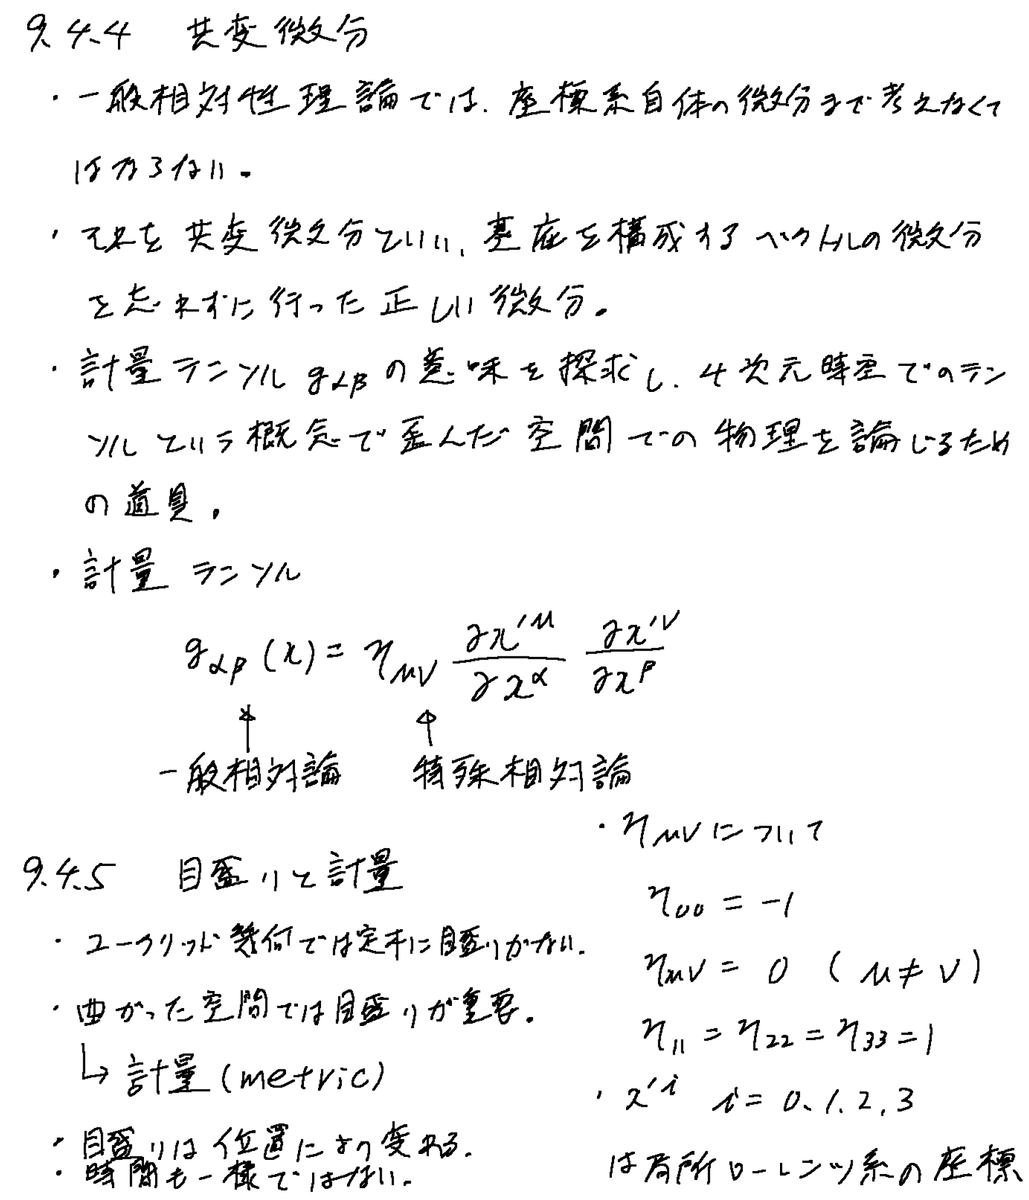 9.4.4 共変微分
・一般相対性理論では、座標系自体の微分まで考えなくて
はならない。
・それを共変微分といい、基底を構成するベクトルの微分
を忘れずに行った正しい微分。
・計量テンソルgαβの意味を探求し、4次元時空でのテン
ソルという概念で歪んだ空間での物理を論じるため
の道具。
・計量テンソル
gαβ(x) = ημν ∂x'^μ/∂x^α ∂x'^ν/∂x^β
一般相対論 特殊相対論
・ημνについて
η00 = -1
ημν = 0 (μ≠ν)
η11 = η22 = η33 = 1
・x'^i i = 0.1.2.3
は局所ローレンツ系の座標
9.4.5 目盛りと計量
・ユークリッド幾何では定木に目盛りがない.
・曲がった空間では目盛りが重要。
↳ 計量(metric)
・目盛りは位置により変わる.
・時間も一様ではない.